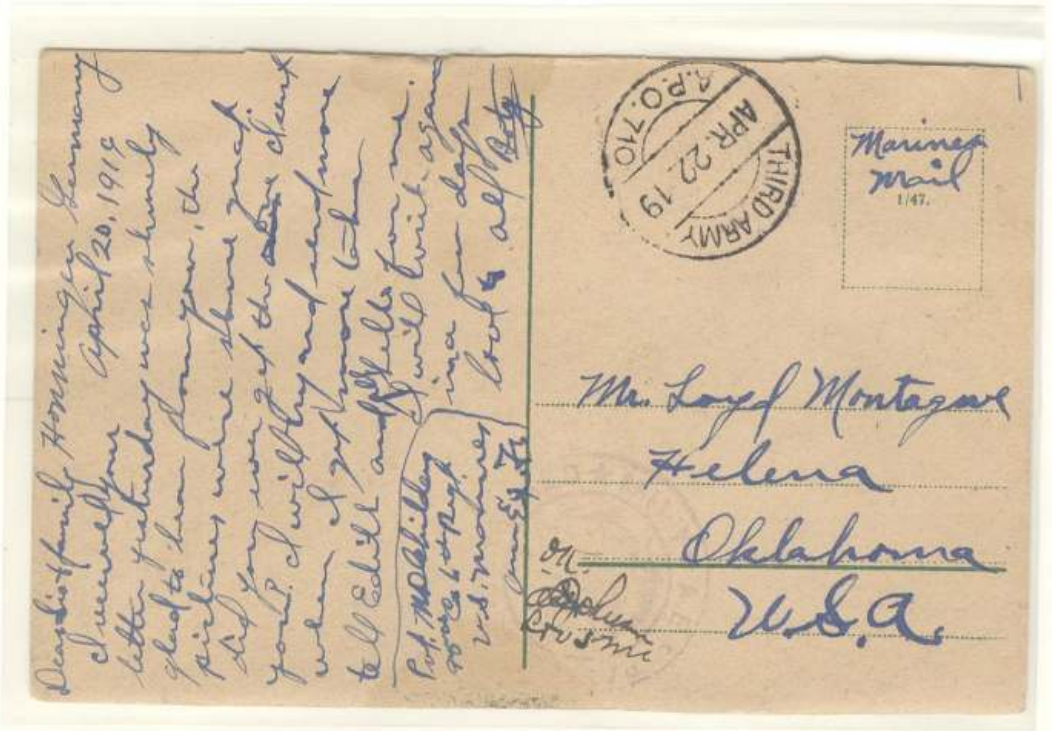 Dear Sis & family Honningen Germany
I received your April 20, 1919
letter yesturday was shurely
glad to hear from you, the
pictures were shure good
did you ever get the client
you? I will try and send more
when I get more taken
tell Edith and all hello for me.
I will write again
in a few days
love to all
Pvt. M D Childers
Co 6th Regt
U.S. Marines
THIRD ARMY
APR. 22. 19
A.P.O. 710
Marines
Mail
1/47.
Mr. Loyd Montague
Helena
Oklahoma
U.S.A.
OK.